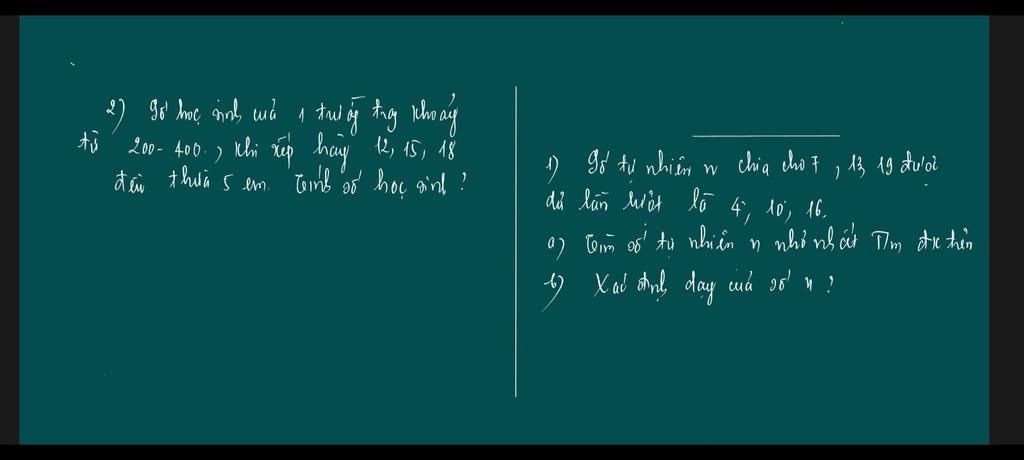 2) Số học sinh của 1 trường trg khoảg
từ 200-400., khi xếp hàg 12, 15, 18
đều thừa 5 em. Tính số học sinh?
1) Số tự nhiên n chia cho 7, 13, 19 được
dư lần lượt là 4, 10, 16.
a) Tìm số tự nhiên n nhỏ nhất T/m đk trên
b) Xác định dạg của số n?